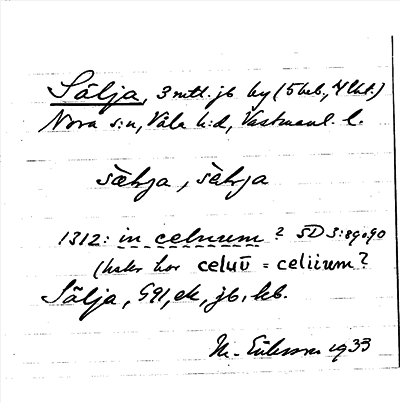 Sälja, 3 mtl. jb by (5 beb., 4 lht.)
Nora s:n, Våla h:d, Västmanl. l.
sälja, sälja
1312: in celnum? SD 3:89,90
(hskr har celuū = celiium?
Sälja, G91, ek, jb, kb.
M. Eriksson 1933